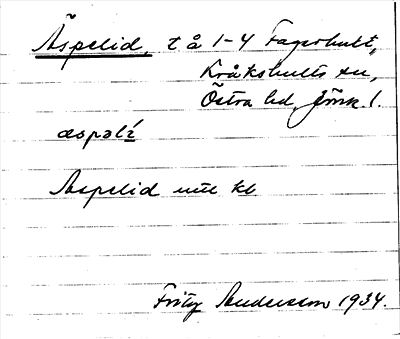 Äspelid, t å 1-4 Fagerhult,
Kråkshults sn,
Östra hd, Jönk. l.
æspəlí
Aspelid unr kl
Fritz Andersson 1934.